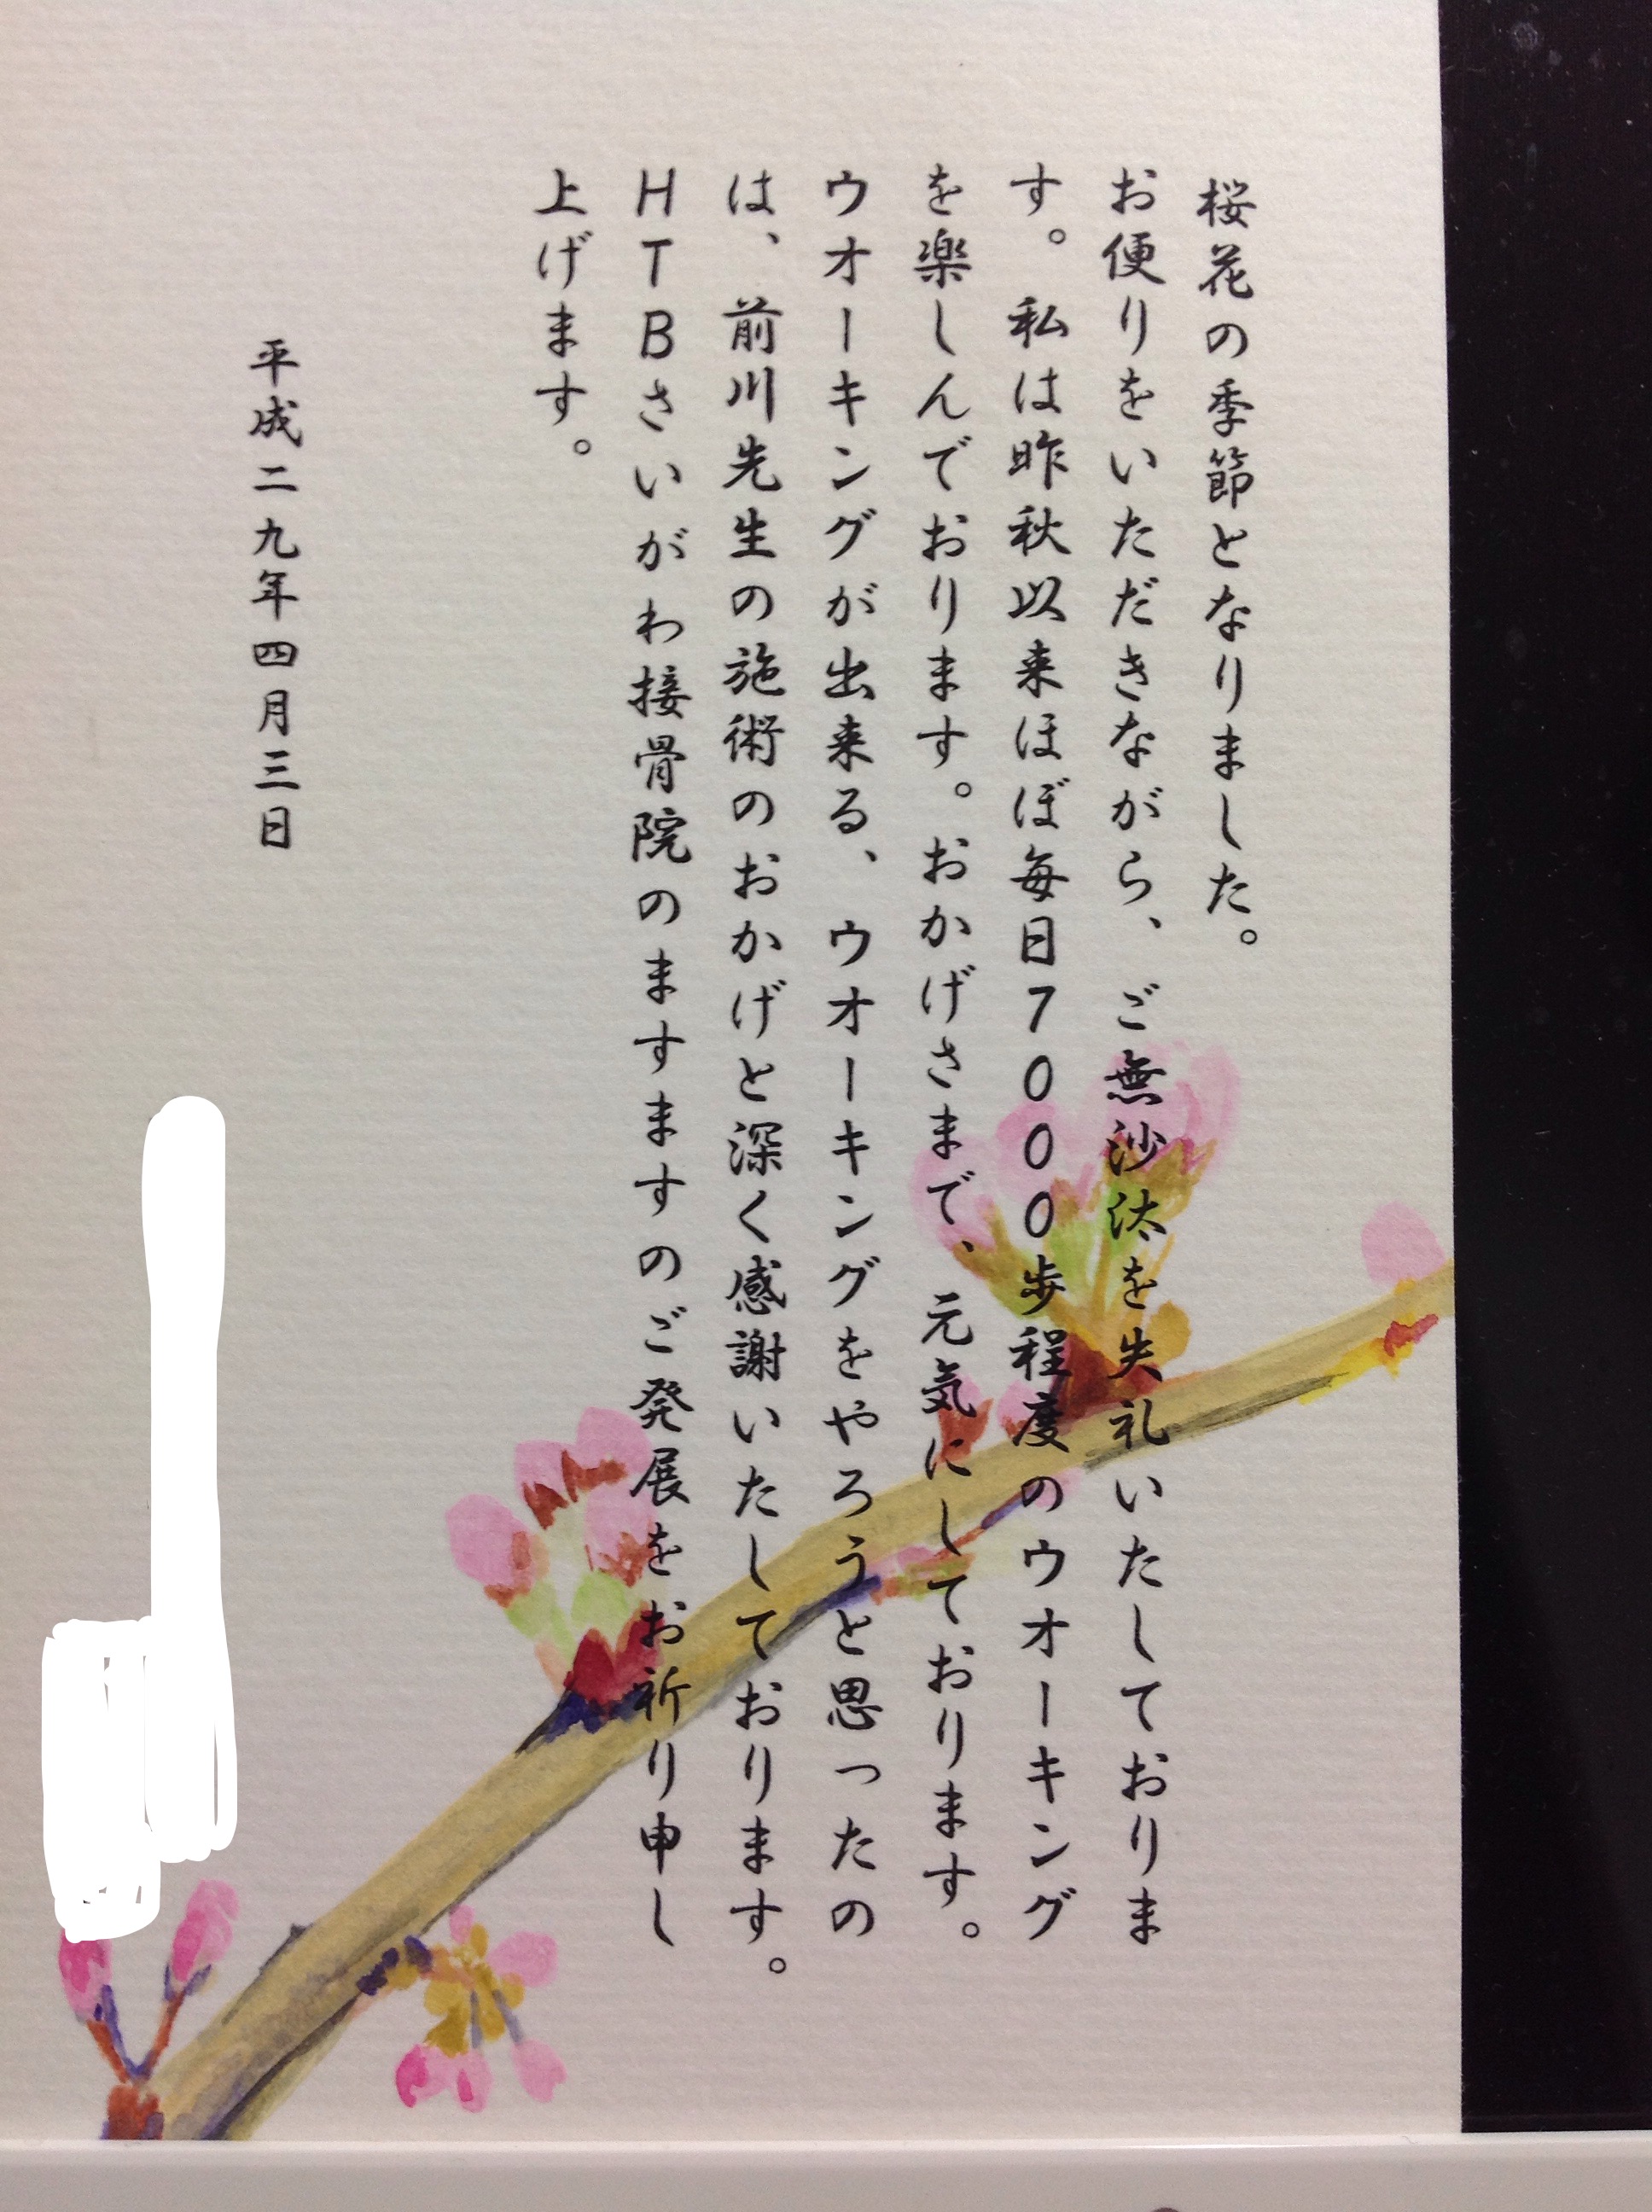 桜花の季節となりました。
お便りをいただきながら、ご無沙汰を失礼いたしておりま
す。私は昨秋以来ほぼ毎日7000歩程度のウオーキング
を楽しんでおります。おかげさまで、元気にしております。
ウオーキングが出来る、ウオーキングをやろうと思ったの
は、前川先生の施術のおかげと深く感謝いたしております。
HTBさいがわ接骨院のますますのご発展をお祈り申し
上げます。
平成二九年四月三日